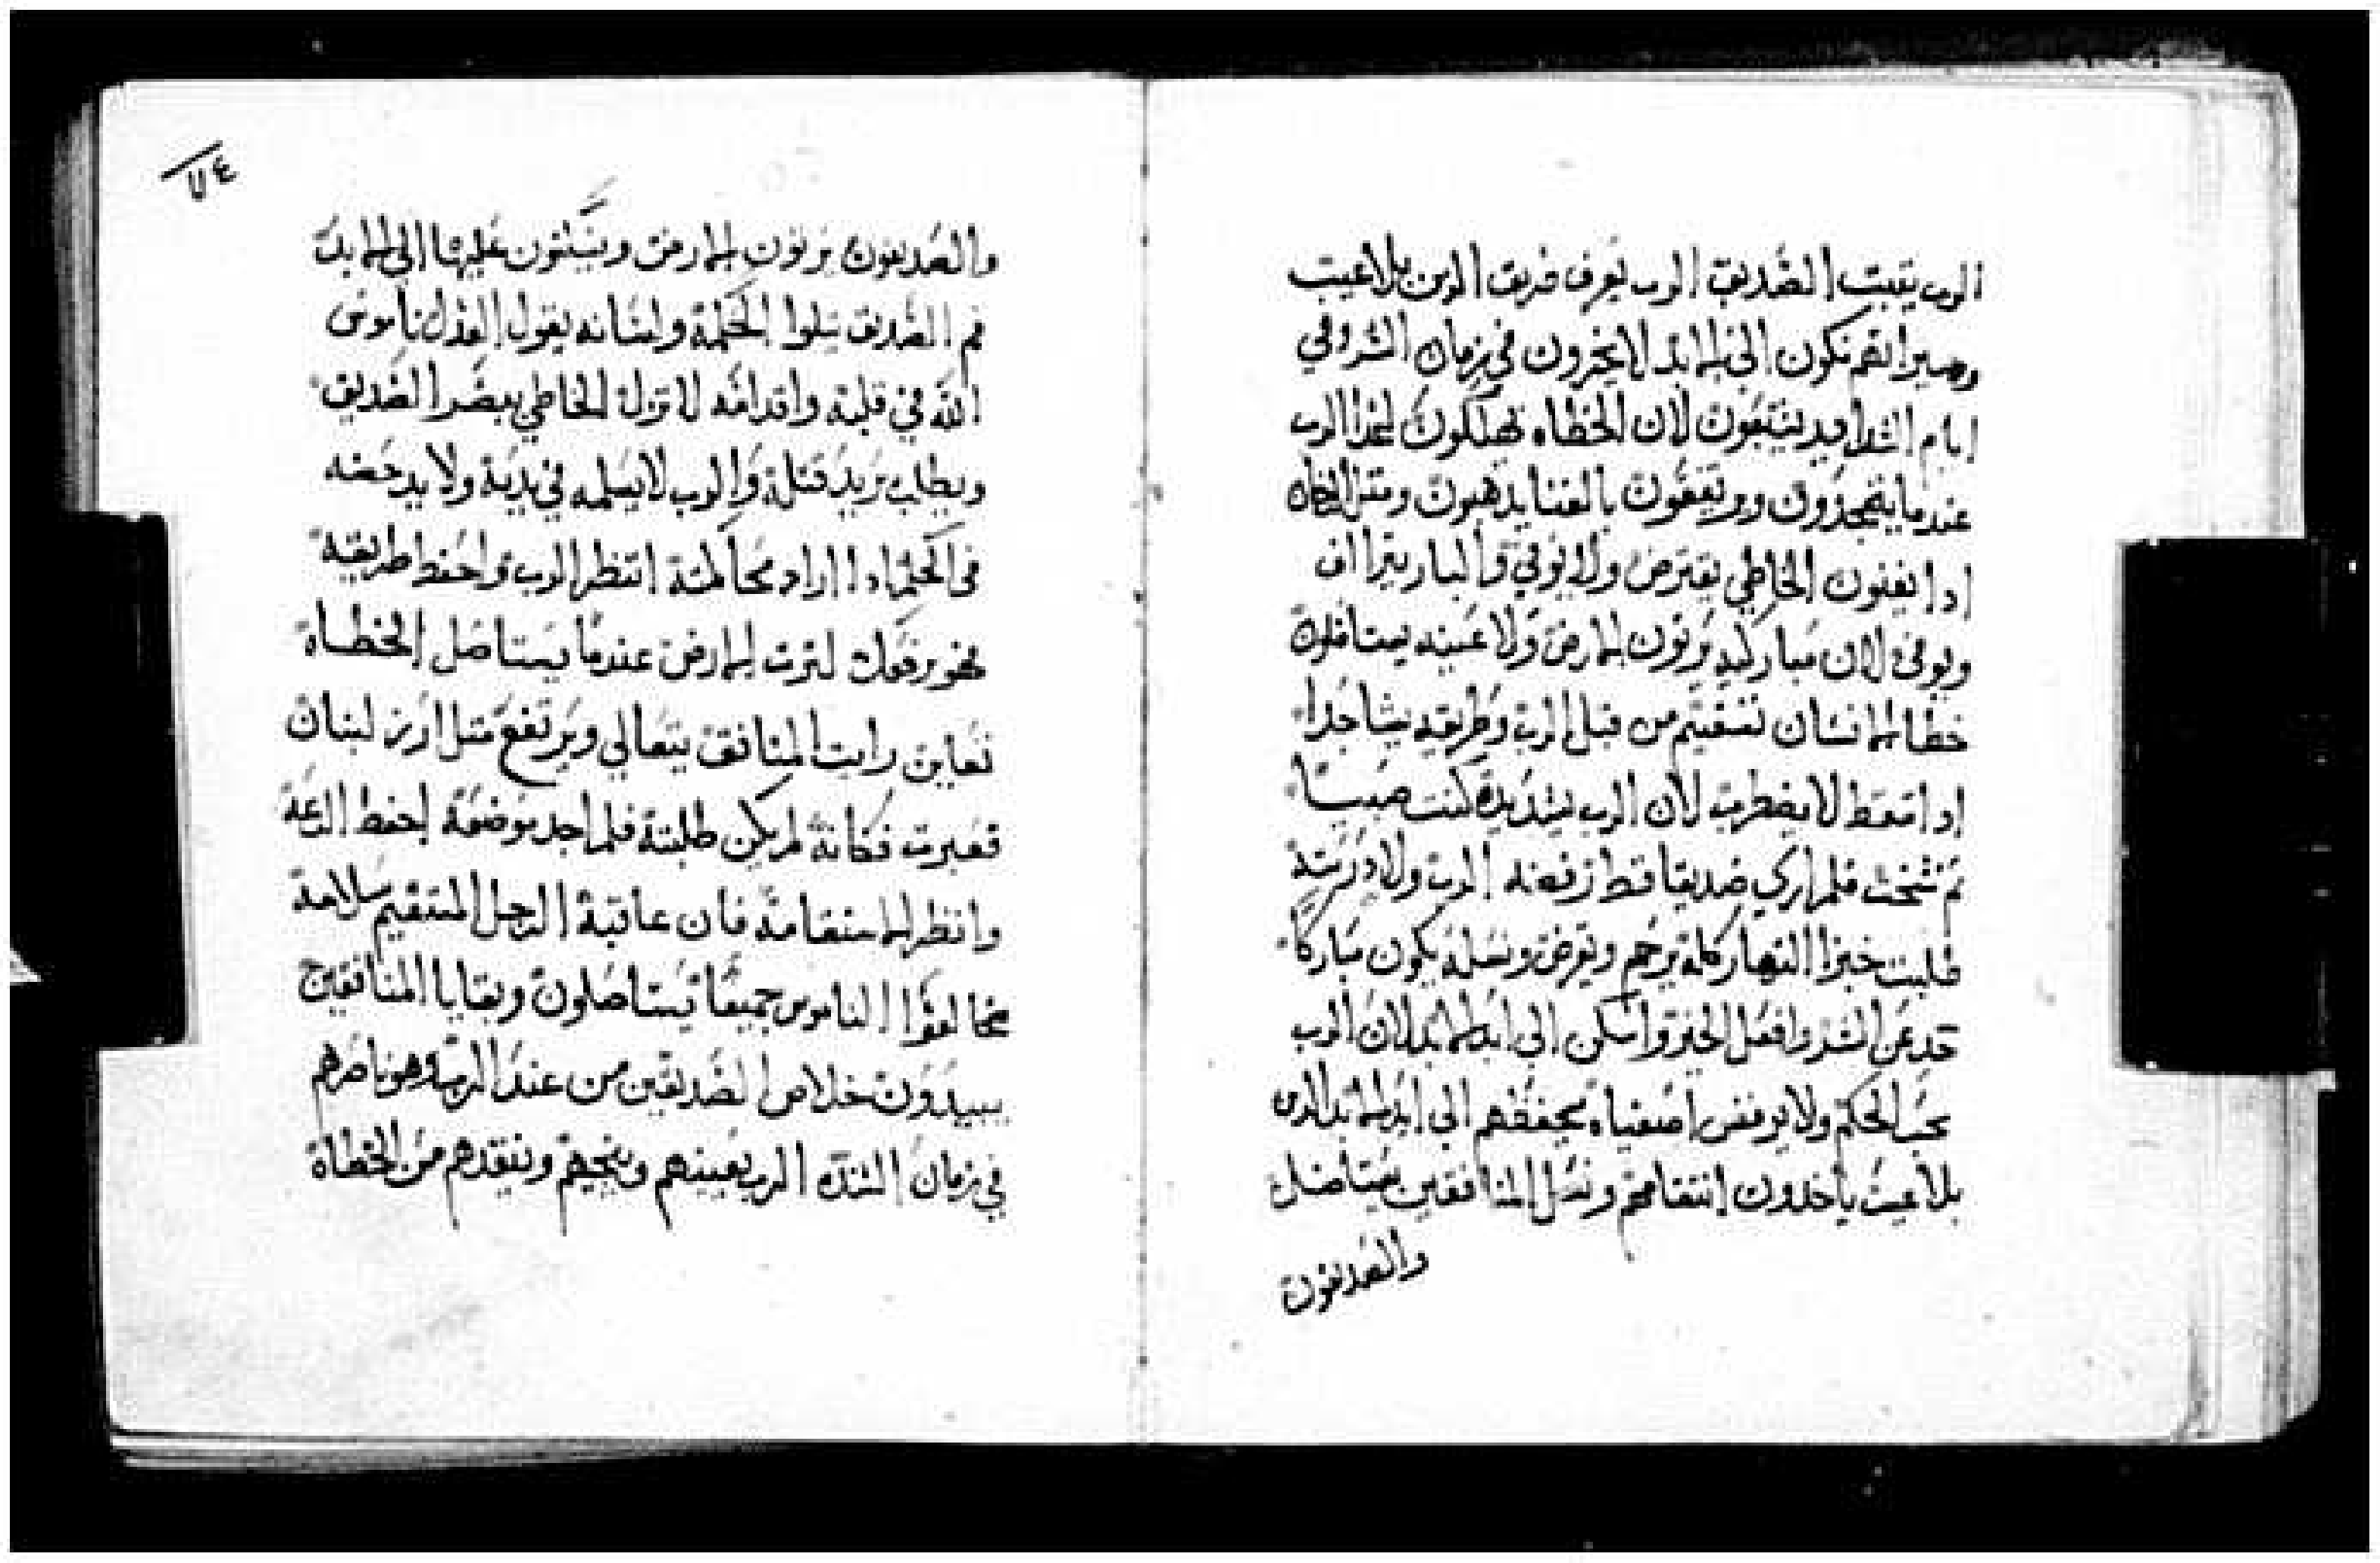 الرب يتبت الصديق الرب يعرف طريق الدين بلا عيب
وميراتهم تكون الي الابد لا يخزون في زمان الشر وفي
ايام الشدايد يشبعون لان الخطاه يهلكون اعدا الرب
عندما يتمجدون ويرتفعون بالفنا يدهبون ومتل الدخان
ادا يفنون الخاطي يقترض ولا يوفي والبار يتراف
ويوفي لان مباركيه يرتون الارض ولاعنيه يستاصلون
خطا الانسان تستقيم من قبل الرب وطريقه يشا جدا
ادا سقط لا يضطرب لان الرب يشد يده كنت صبيا
تم شخت فلم اري صديقا قط رفضه الرب ولا دريته
طلبت خبزا النهار كله يرحم ويقرض ونسله يكون مباركا
حد عن الشر وافعل الخير واسكن الي ابد الابد لان الرب
يحب الحكم ولا يرفض اصفياه يحفظهم الي ابد الابد الدين
بلا عيب ياخدون انتقامهم ونسل المنافقين يستاصل
والصديقون
٧٤
والصديقون يرتون الارض ويسكنون عليها الي الابد
فم الصديق يتلوا الحكمة ولسانه يقول العدل ناموس
الله في قلبه واقدامه لا تزل الخاطي يبصر الصديق
ويطلب يريد قتله والرب لا يسلمه في يديه ولا يدحضه
في الحكم ادا اراد محاكمته انتظر الرب واحفظ طريقه
فهو يرفعك لترت الارض عندما يستاصل الخطاة
تعاين رايت المنافق يتعالي ويرتفع متل ارز لبنان
فعبرت فكانه لم يكن طلبته فلم اجد موضعه احفظ الدعة
وانظر الاستقامة فان عاقبة الرجل المستقيم سلامة
مخالفوا الناموس جميعا يستاصلون وبقايا المنافقين
يبيدون خلاص الصديقين من عند الرب وهو ناصرهم
في زمان الشده الرب يعينهم وينجيهم وينقدهم من الخطاة